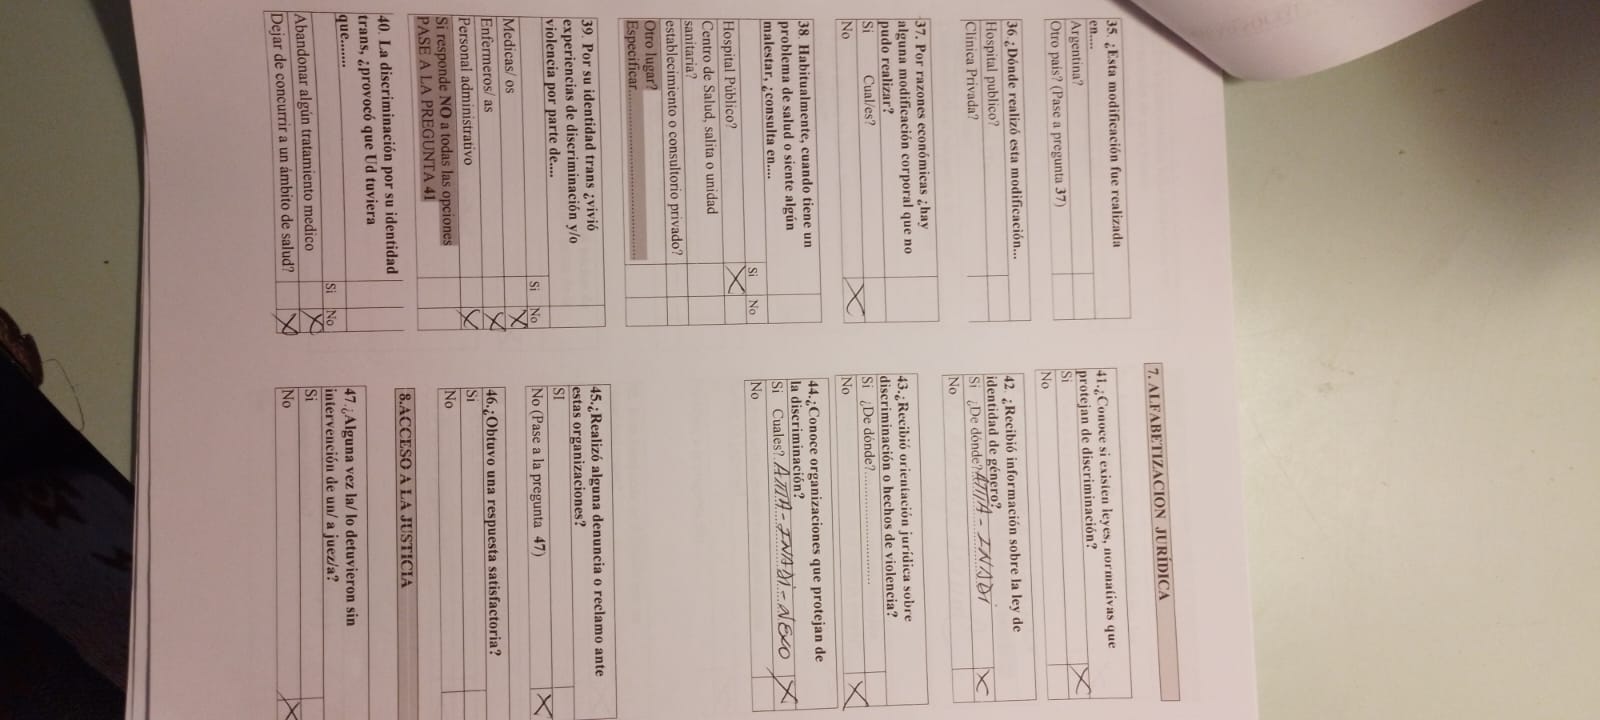 35. ¿Esta modificación fue realizada
en....
Argentina?
Otro país? (Pase a pregunta 37)
36.¿Dónde realizó esta modificación...
Hospital publico?
Clínica Privada?
37. Por razones económicas ¿hay
alguna modificación corporal que no
pudo realizar?
Si Cual/es?
No X
38. Habitualmente, cuando tiene un
problema de salud o siente algún
malestar, ¿consulta en....
Si No
Hospital Público? X
Centro de Salud, salita o unidad
sanitaria?
establecimiento o consultorio privado?
Otro lugar?
Especificar............................................
39. Por su identidad trans ¿vivió
experiencias de discriminación y/o
violencia por parte de....
Si No
Medicas/ os X
Enfermeros/ as X
Personal administrativo X
Si responde NO a todas las opciones
PASE A LA PREGUNTA 41
40. La discriminación por su identidad
trans, ¿provocó que Ud tuviera
que.......
Si No
Abandonar algún tratamiento medico X
Dejar de concurrir a un ámbito de salud? X
7. ALFABETIZACION JURÍDICA
41.¿Conoce si existen leyes, normativas que
protejan de discriminación?
Si X
No
42. ¿Recibió información sobre la ley de
identidad de género?
Si ¿De dónde? ATTTA - INADI X
No
43.¿Recibió orientación jurídica sobre
discriminación o hechos de violencia?
Si ¿De dónde?..............................
No X
44.¿Conoce organizaciones que protejan de
la discriminación?
Si Cuales? ATTTA - INADI - NEXO X
No
45.¿Realizó alguna denuncia o reclamo ante
estas organizaciones?
SI
No (Pase a la pregunta 47) X
46.¿Obtuvo una respuesta satisfactoria?
Si
No
8.ACCESO A LA JUSTICIA
47.¿Alguna vez la/ lo detuvieron sin
intervención de un/ a juez/a?
Si
No X